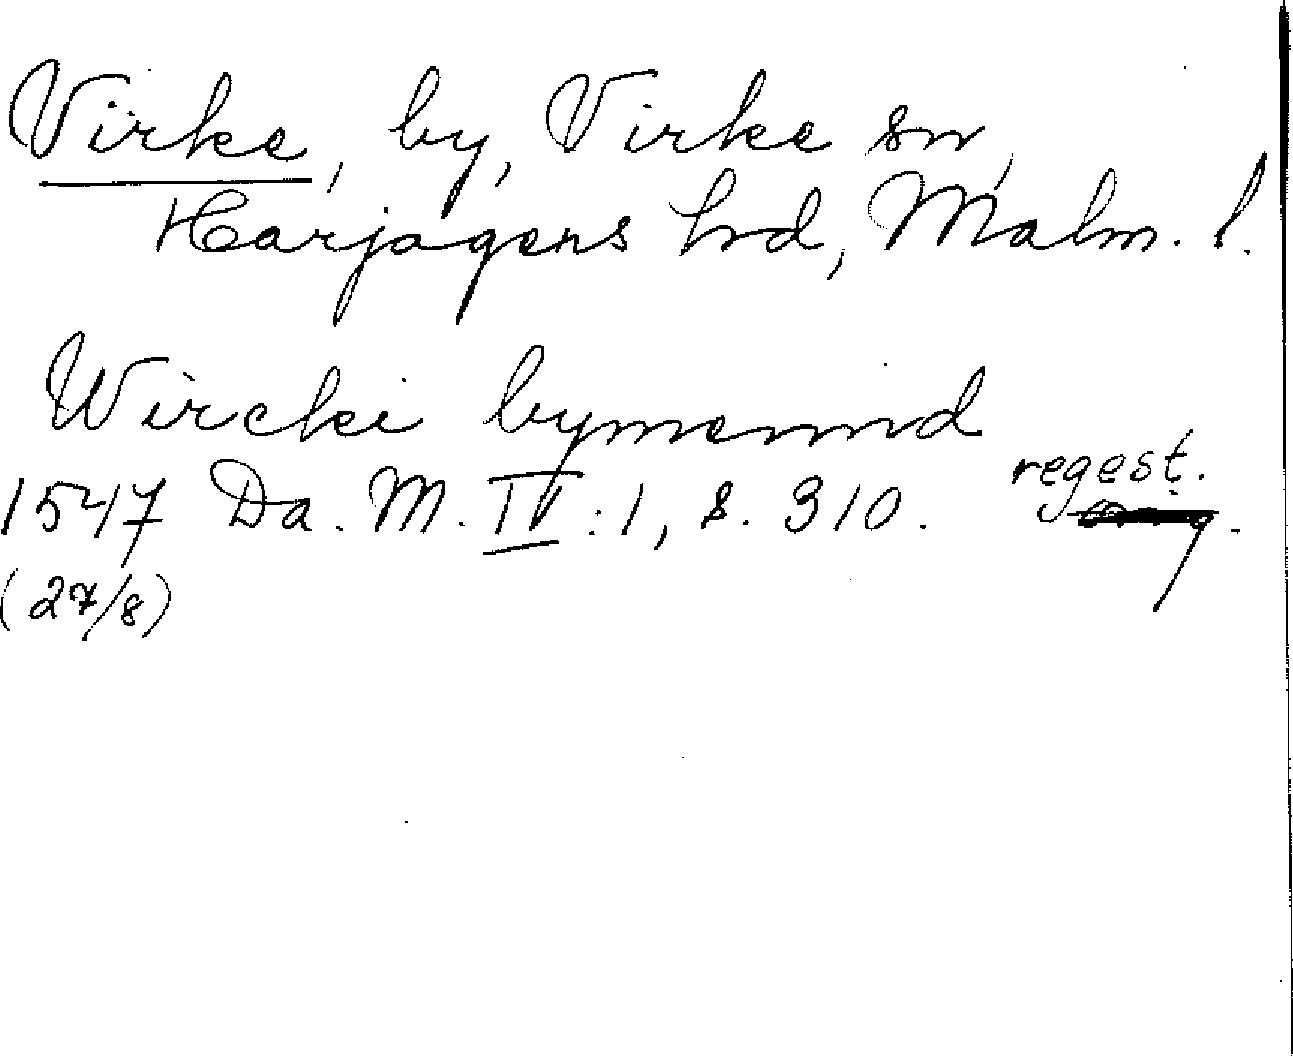 Virke, by, Virke sn,
Harjagers hrd, Malm. l.
Wircke bymennd
1547 Da. M. IV:1, s. 310. regest.
(27/8)